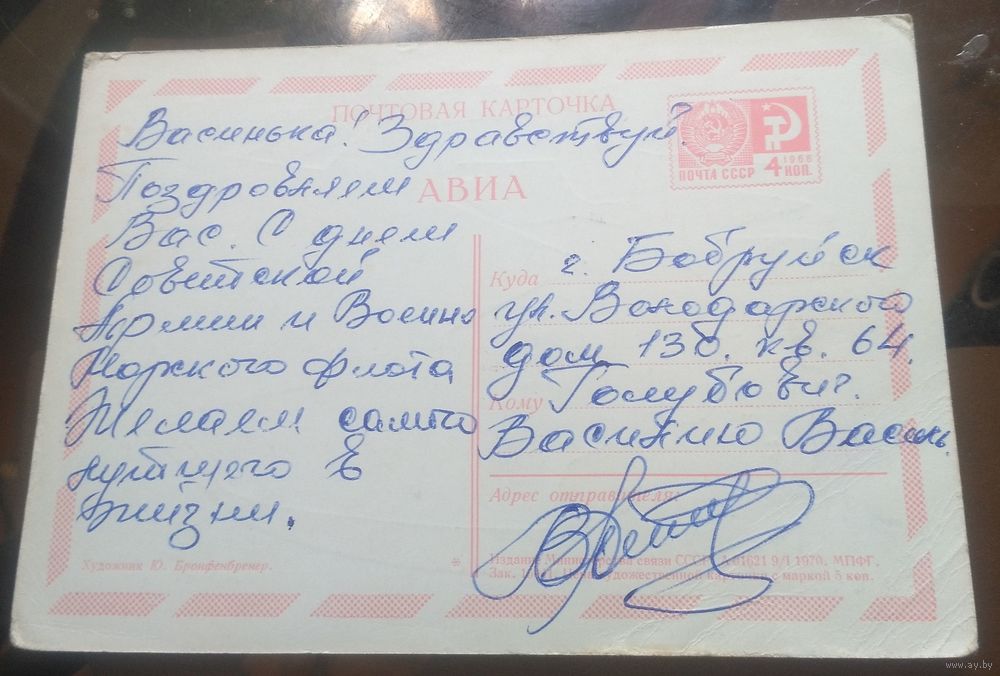 ПОЧТОВАЯ КАРТОЧКА
АВИА
ПОЧТА СССР
1966
4 КОП.
Васинька! Здравствуй!
Поздровляем
Вас. С днем
Советской
Армии и Военно
Моржского флота
Желаем самого
лутшего в
жизни.
Куда г. Бобруйск
ул. Володарского
дом 130. кв. 64.
Кому Голубович.
Василию Василь.
Адрес отправителя:
Художник Ю. Бронфенбренер.
*
Издание Министерства связи СССР. 01621 9/I 1970. МПФГ.
Зак. художественной карточки с маркой 5 коп.
www.ay.by